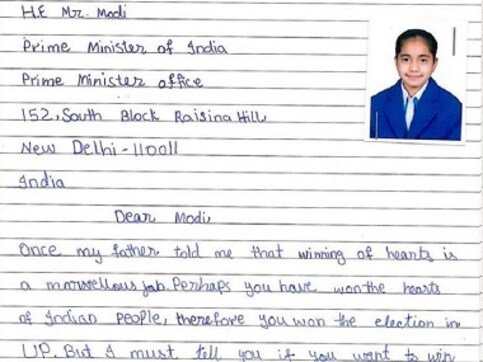 H.E Mr. Modi
Prime Minister of India
Prime Minister office
152, South Block Raisina Hill
New Delhi-110011
India
Dear Modi,
Once my father told me that winning of hearts is
a marvellous job. Perhaps you have won the hearts
of Indian People, therefore you won the election in
UP. But I must tell you if you want to win